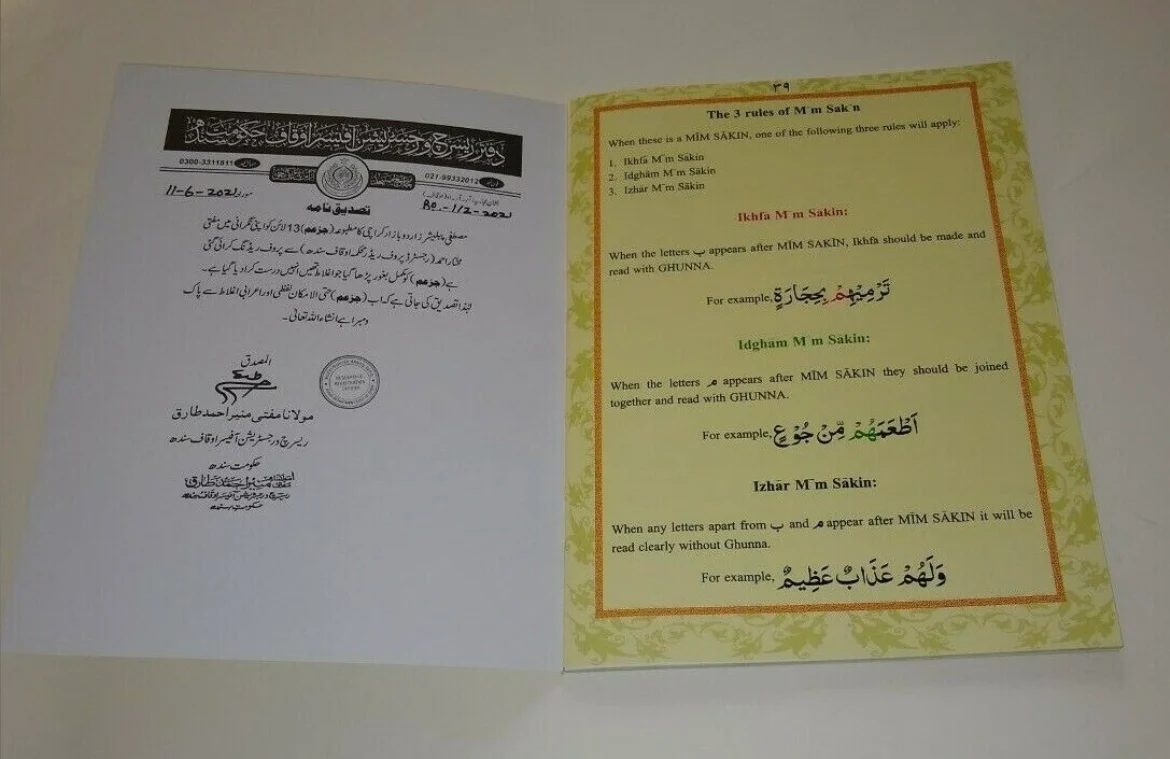 دفتر ریسرچ و رجسٹریشن آفیسر اوقاف حکومت سندھ
0300-3311811
021-99332012
مورخہ 11-6-2021
RO.-112-2021
تصدیق نامہ
پبلیشرز اردو بازار کراچی کا مطبوعہ (جز عم) 13 لائن کو اپنی نگرانی میں مفتی
مختار احمد (رجسٹرڈ پروف ریڈر محکمہ اوقاف سندھ) سے پروف ریڈنگ کرائی گئی
ہے (جز عم) کو مکمل بغور پڑھا گیا جو اغلاط تھیں انہیں درست کرا دیا گیا ہے۔
لہٰذا تصدیق کی جاتی ہے کہ اب (جز عم) حتی الامکان لفظی اور اعرابی اغلاط سے پاک
ومبرا ہے انشاء اللہ تعالیٰ۔
المصدق
مولانا مفتی منیر احمد طارق
ریسرچ و رجسٹریشن آفیسر اوقاف سندھ
حکومت سندھ
RESEARCH &
REGISTRATION
OFFICER
منیر احمد طارق
ریسرچ و رجسٹریشن آفیسر اوقاف سندھ
حکومت سندھ
٣٩
The 3 rules of M¯m Sak¨n
When these is a MĪM SĀKIN, one of the following three rules will apply:
1. Ikhfā M¯m Sākin
2. Idghām M¯m Sākin
3. Izhār M¯m Sākin
Ikhfa M¯m Sākin:
When the letters ب appears after MĪM SĀKIN, Ikhfā should be made and
read with GHUNNA.
For example, تَرْمِيْهِمْ بِحِجَارَةٍ
Idgham M m Sakin:
When the letters م appears after MĪM SĀKIN they should be joined
together and read with GHUNNA.
For example, اَطْعَمَهُمْ مِّنْ جُوْعٍ
Izhār M¯m Sākin:
When any letters apart from ب and م appear after MĪM SĀKIN it will be
read clearly without Ghunna.
For example, وَلَهُمْ عَذَابٌ عَظِيمٌ